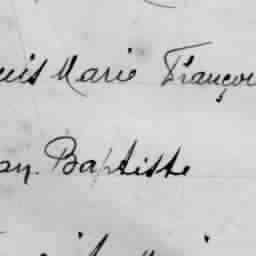 uis Marie Françoi
an Baptiste